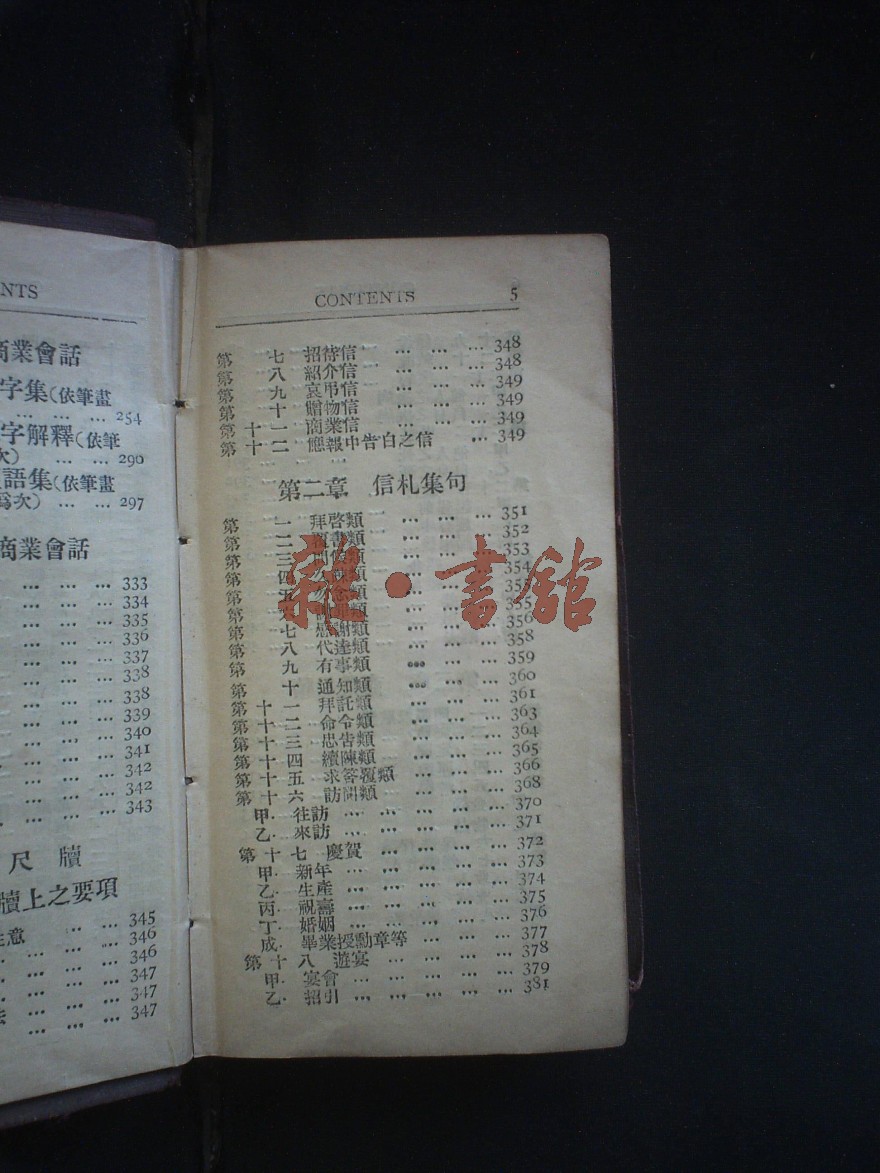 NTS
商業會話
字集(依筆畫
... ... ... 254
字解釋(依筆
次) ... ... 290
語集(依筆畫
爲次) ... ... 297
商業會話
... ... ... 333
... ... ... 334
... ... ... 335
... ... ... 336
... ... ... 337
... ... ... 338
... ... ... 338
... ... ... 339
... ... ... 340
... ... ... 341
... ... ... 342
... ... ... 342
... ... ... 343
尺牘
牘上之要項
... ... 345
意 ... ... 346
... ... ... 346
... ... ... 347
... ... ... 347
... ... ... 347
CONTENTS 5
第七 招待信 ... ... ... 348
第八 紹介信 ... ... ... 348
第九 哀弔信 ... ... ... 349
第十 贈物信 ... ... ... 349
第十一 商業信 ... ... ... 349
第十二 應報中告白之信 ... 349
第二章 信札集句
第一 拜啓類 ... ... ... 351
第二 類 ... ... ... 352
第三 類 ... ... ... 353
第四 類 ... ... ... 354
第五 類 ... ... 355
類 ... ... 355
第七 謝類 ... ... ... 356
第八 代達類 ... ... ... 358
第九 有事類 ... ... ... 359
第十 通知類 ... ... ... 360
第十一 拜託類 ... ... ... 361
第十二 命令類 ... ... ... 363
第十三 忠告類 ... ... ... 364
第十四 續陳類 ... ... ... 365
第十五 求答覆類 ... ... ... 366
第十六 訪問類 ... ... ... 368
甲. 往訪 ... ... ... 370
乙. 來訪 ... ... ... 371
第十七 慶賀 ... ... ... 372
甲. 新年 ... ... ... 373
乙. 生產 ... ... ... 374
丙. 祝壽 ... ... ... 375
丁. 婚姻 ... ... ... 376
成. 畢業授勳章等 ... ... ... 377
第十八 遊宴 ... ... ... 378
甲. 宴會 ... ... ... 379
乙. 招引 ... ... ... 381
雜·書館